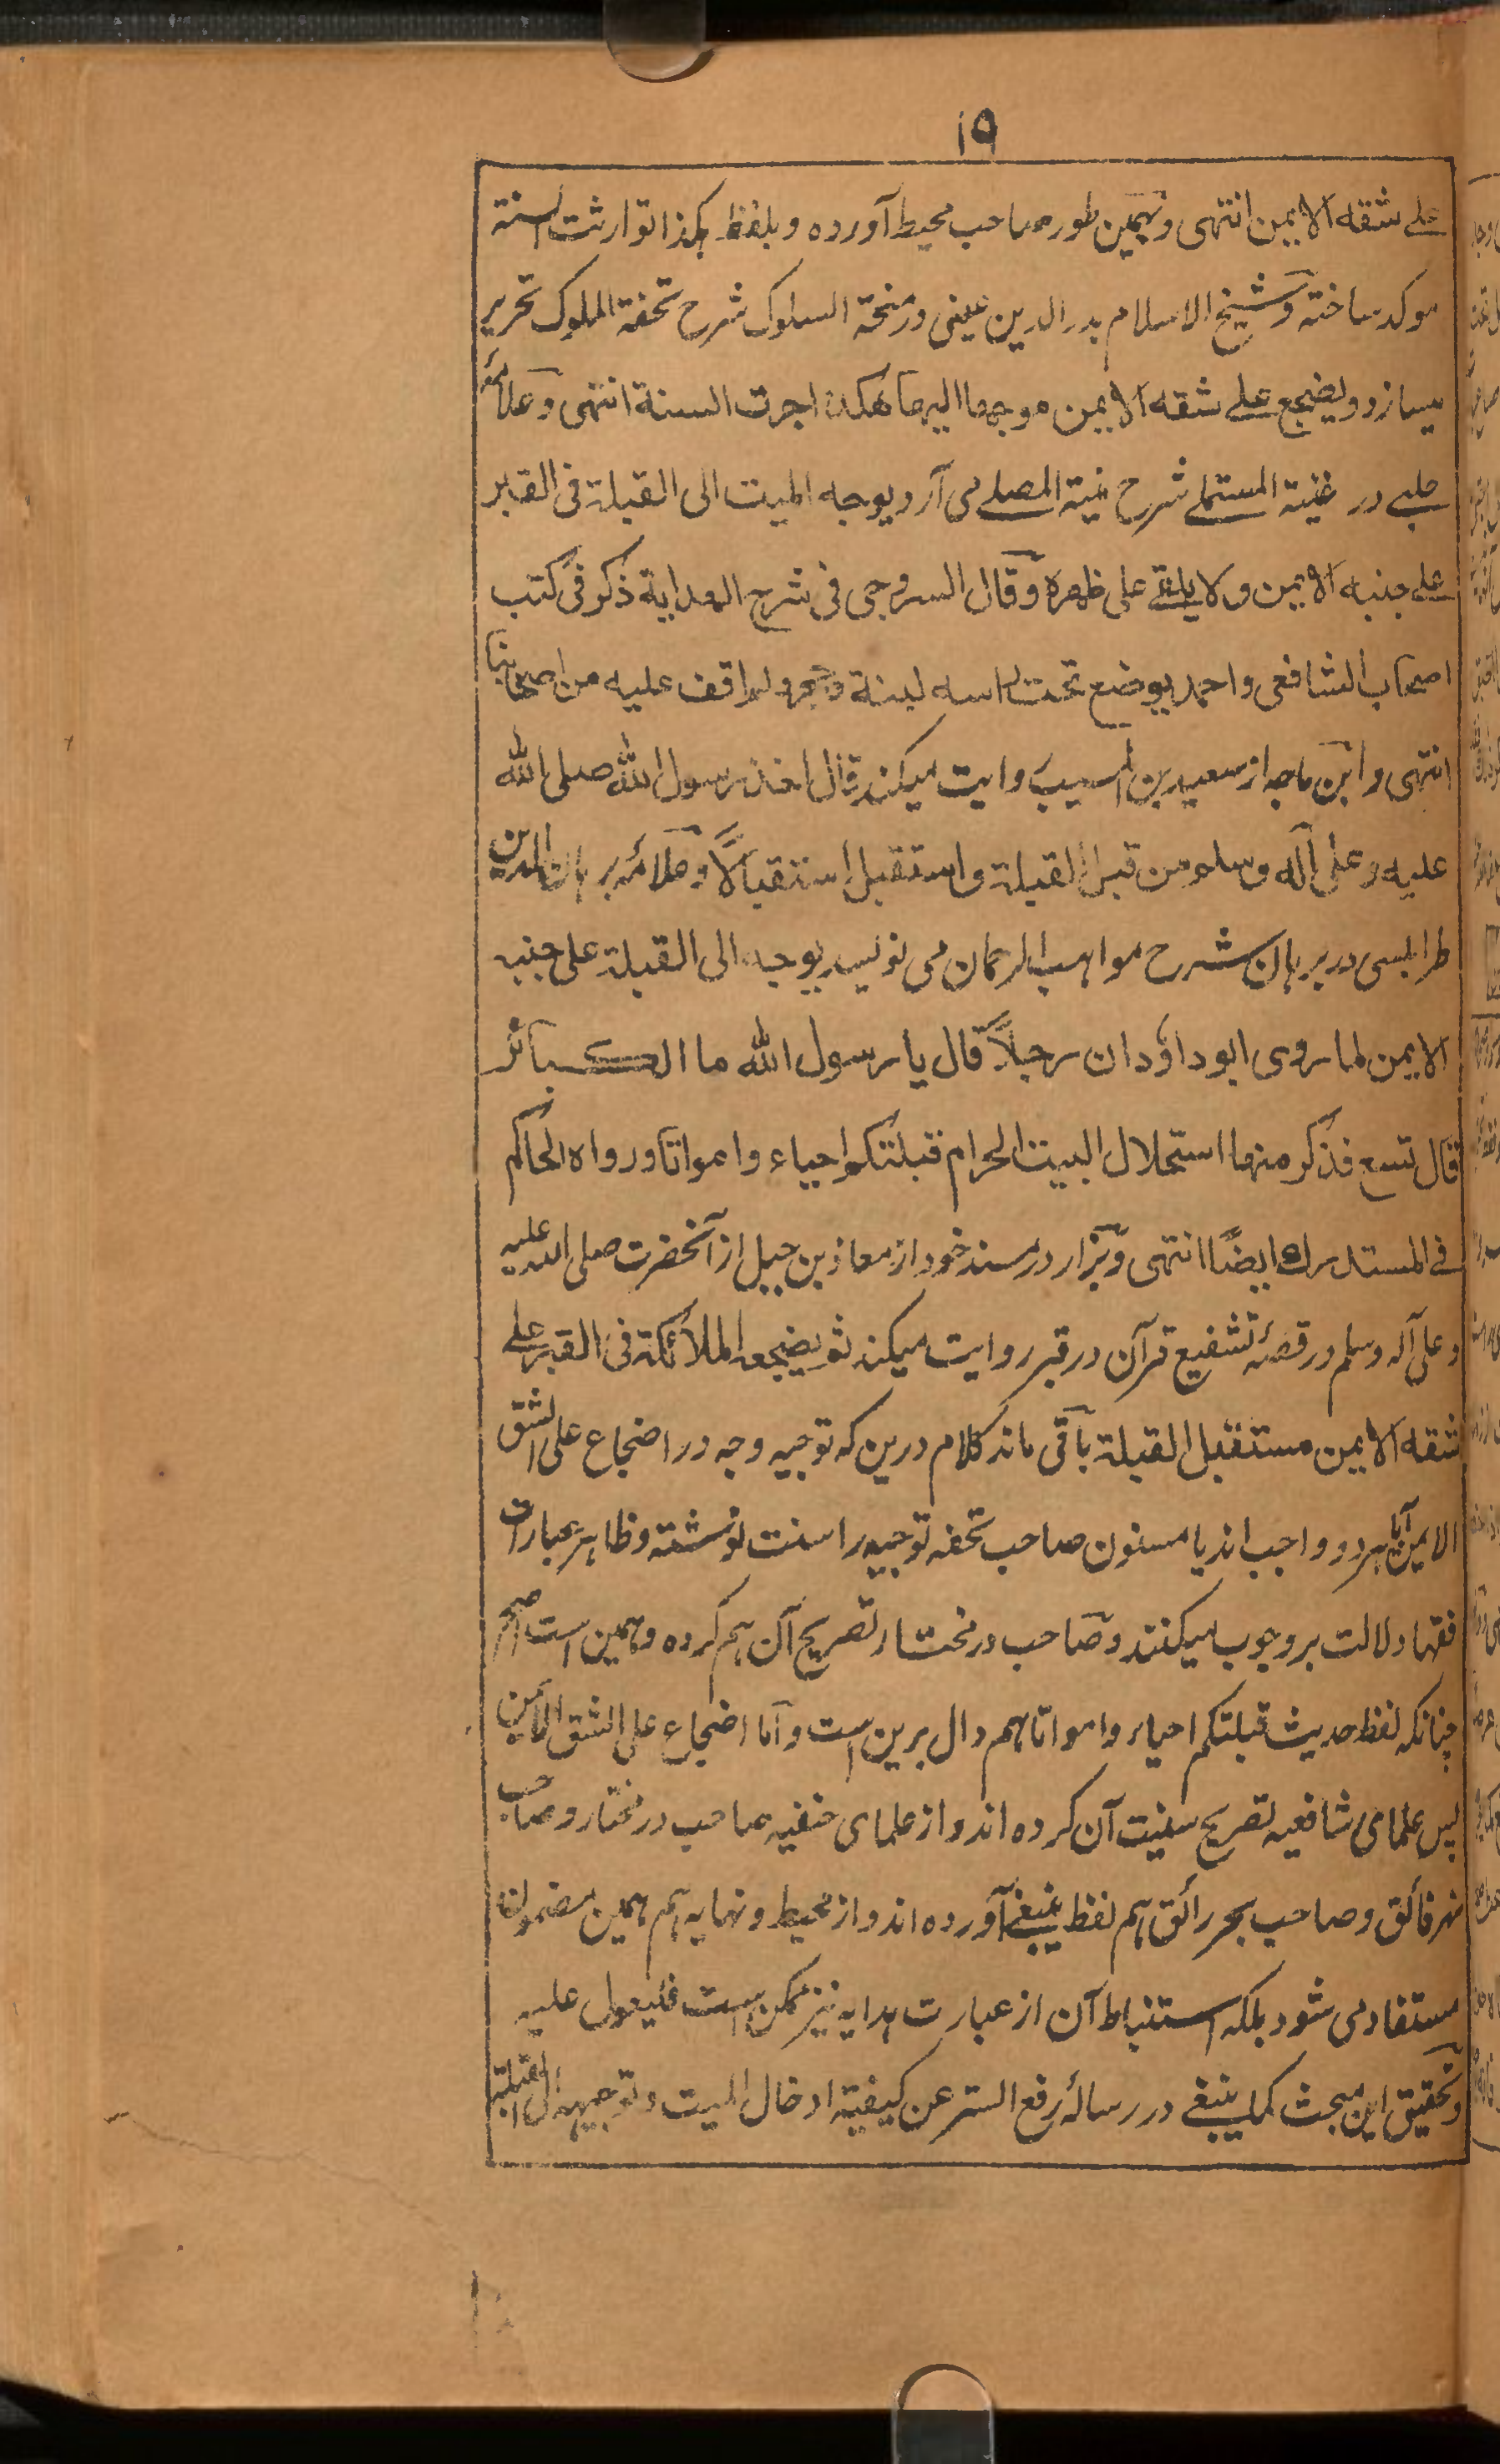 ۱۹
علے شقه الایمن انتهی و بهمین طور صاحب محیط آورده و بلفظ هکذا توارثت السنة
موکد ساخته و شیخ الاسلام بدر الدین عینی در منحة السلوک شرح تحفة الملوک تحریر
میسازد و یضجع علے شقه الایمن موجها الیها هکذا جرت السنة انتهی و علامهٔ
حلبے در غنیة المستملے شرح منیة المصلے می آرد یوجه المیت الی القبلة فی القبر
علے جنبه الایمن ولا یلقے علی ظهره و قال السروجی فی شرح الهدایة ذکر فی کتب
اصحاب الشافعی و احمد یوضع تحت راسه لبنة و حجر و لم اقف علیه من اصحابنا
انتهی و ابن ماجه از سعید بن المسیب روایت میکند قال اخذ رسول الله صلی الله
علیه و علی آله وسلم من قبل القبلة و استقبل استقبالًا و علامهٔ برهان الدین
طرابلسی در برهان شرح مواهب الرحمان می نویسد یوجه الی القبلة علی جنبه
الایمن لما روی ابو داؤد ان رجلاً قال یا رسول الله ما الکبائر
قال تسع فذکر منها استحلال البیت الحرام قبلتکم احیاء و امواتا و رواه الحاکم
فے المستدرک ایضًا انتهی و بزار در مسند خود از معاذ بن جبل از آنحضرت صلی الله علیه
و علی آله وسلم در قصهٔ تشفیع قرآن در قبر روایت میکند ثم یضجعه الملائکة فی القبر علے
شقه الایمن مستقبل القبلة باقی ماند کلام درین که توجیه وجه در اضجاع علی الشق
الایمن آیا هر دو واجب اند یا مسنون صاحب تحفه توجیه را سنت نوشته و ظاهر عبارات
فقها دلالت بر وجوب میکنند و صاحب در مختار تصریح آن هم کرده و همین است اصح
چنانکه لفظ حدیث قبلتکم احیاء و امواتا هم دال برین است و اما اضجاع علی الشق الایمن
پس علمای شافعیه تصریح سنیت آن کرده اند و از علمای حنفیه صاحب در مختار و صاحب
نهر فائق و صاحب بحر رائق هم لفظ ینبغے آورده اند و از محیط و نهایه هم همین مضمون
مستفاد می شود بلکه استنباط آن از عبارت هدایه نیز ممکن است فلیعول علیه
و تحقیق این مبحث کما ینبغے در رسالهٔ رفع الستر عن کیفیة ادخال المیت و توجیهه الی القبلة